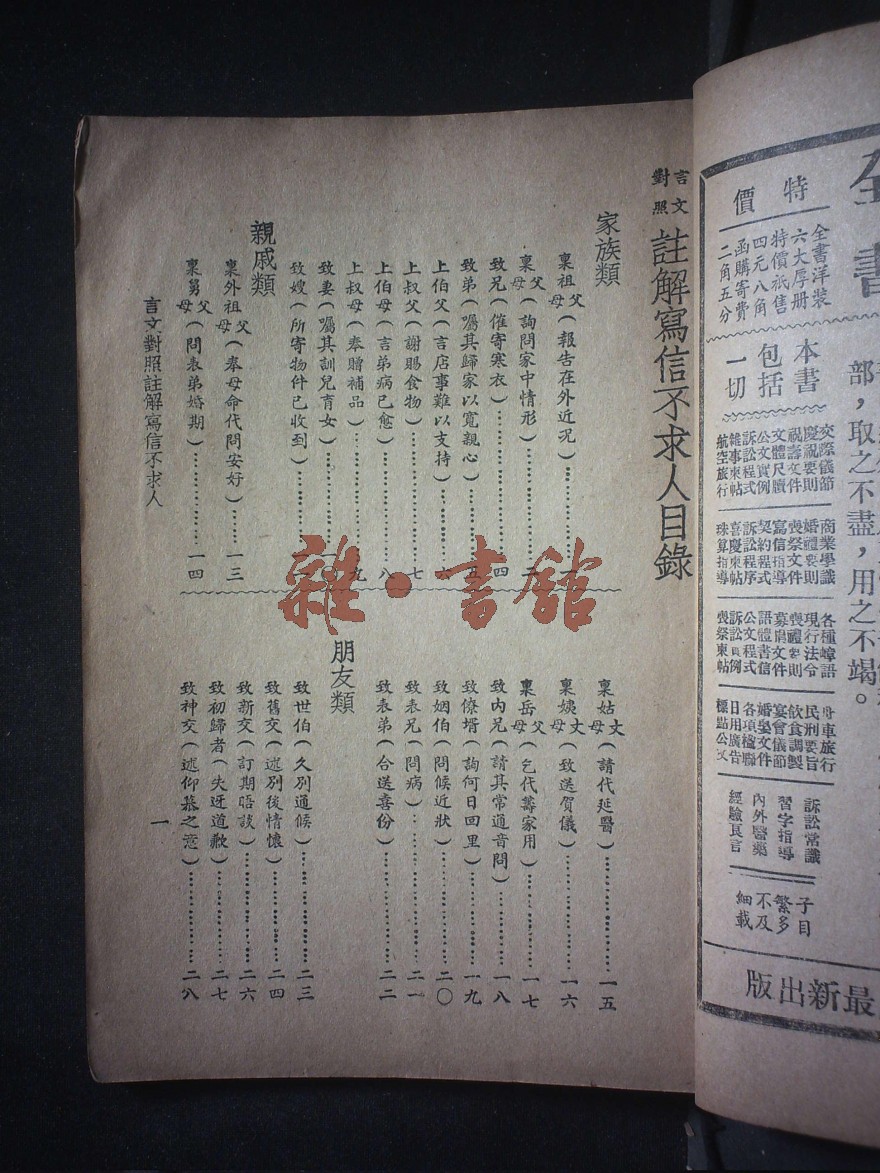 言文對照 註解寫信不求人目錄
家族類
稟祖父母(報告在外近况)…………一
稟父母(詢問家中情形)…………二
致兄(催寄寒衣)…………四
致弟(囑其歸家以寬親心)…………五
上伯父(言店事難以支持)…………六
上叔父(謝賜食物)…………七
上伯母(言弟病已愈)…………八
上叔母(奉贈補品)…………九
致妻(囑其訓兒育女)…………
致嫂(所寄物件已收到)…………
親戚類
稟外祖父母(奉母命代問安好)…………一三
稟舅父母(問表弟婚期)…………一四
稟姑丈母(請代延醫)…………一五
稟姨丈母(致送賀儀)…………一六
稟岳父母(乞代籌家用)…………一七
致內兄(請其常通音問)…………一八
致僚壻(詢何日回里)…………一九
致姻伯(問候近狀)…………二〇
致表兄(問病)…………二一
致表弟(合送喜份)…………二二
朋友類
致世伯(久別通候)…………二三
致舊交(述別後情懷)…………二四
致新交(訂期晤談)…………二六
致初歸者(失迓道歉)…………二七
致神交(述仰慕之意)…………二八
言文對照註解寫信不求人
一
雜·書舘
全書
部,取之不盡,用之不竭。
特價
全書洋裝
六大厚册
特價祇售
四元八角
函購寄費
二角五分
本書包括一切
交際儀節
慶祝要則
祝壽文件
文體尺牘
公文實例
訴訟程式
雜事柬帖
航空旅行
商業學識
婚禮要則
喪祭文件
寫信指導
契約程式
訴訟程序
喜慶柬帖
珠算指導
各種嶂語
現行法令
喪禮要則
募啟文件
語體書信
公文程式
訴訟實例
喪祭柬帖
舟車旅行
民刑要旨
飲食調製
宴會儀節
婚嫁文件
各項楹聯
日用廣告
標點公文
訴訟常識
習字指導
內外醫藥
經驗良言
子目繁多
不及細載
最新出版